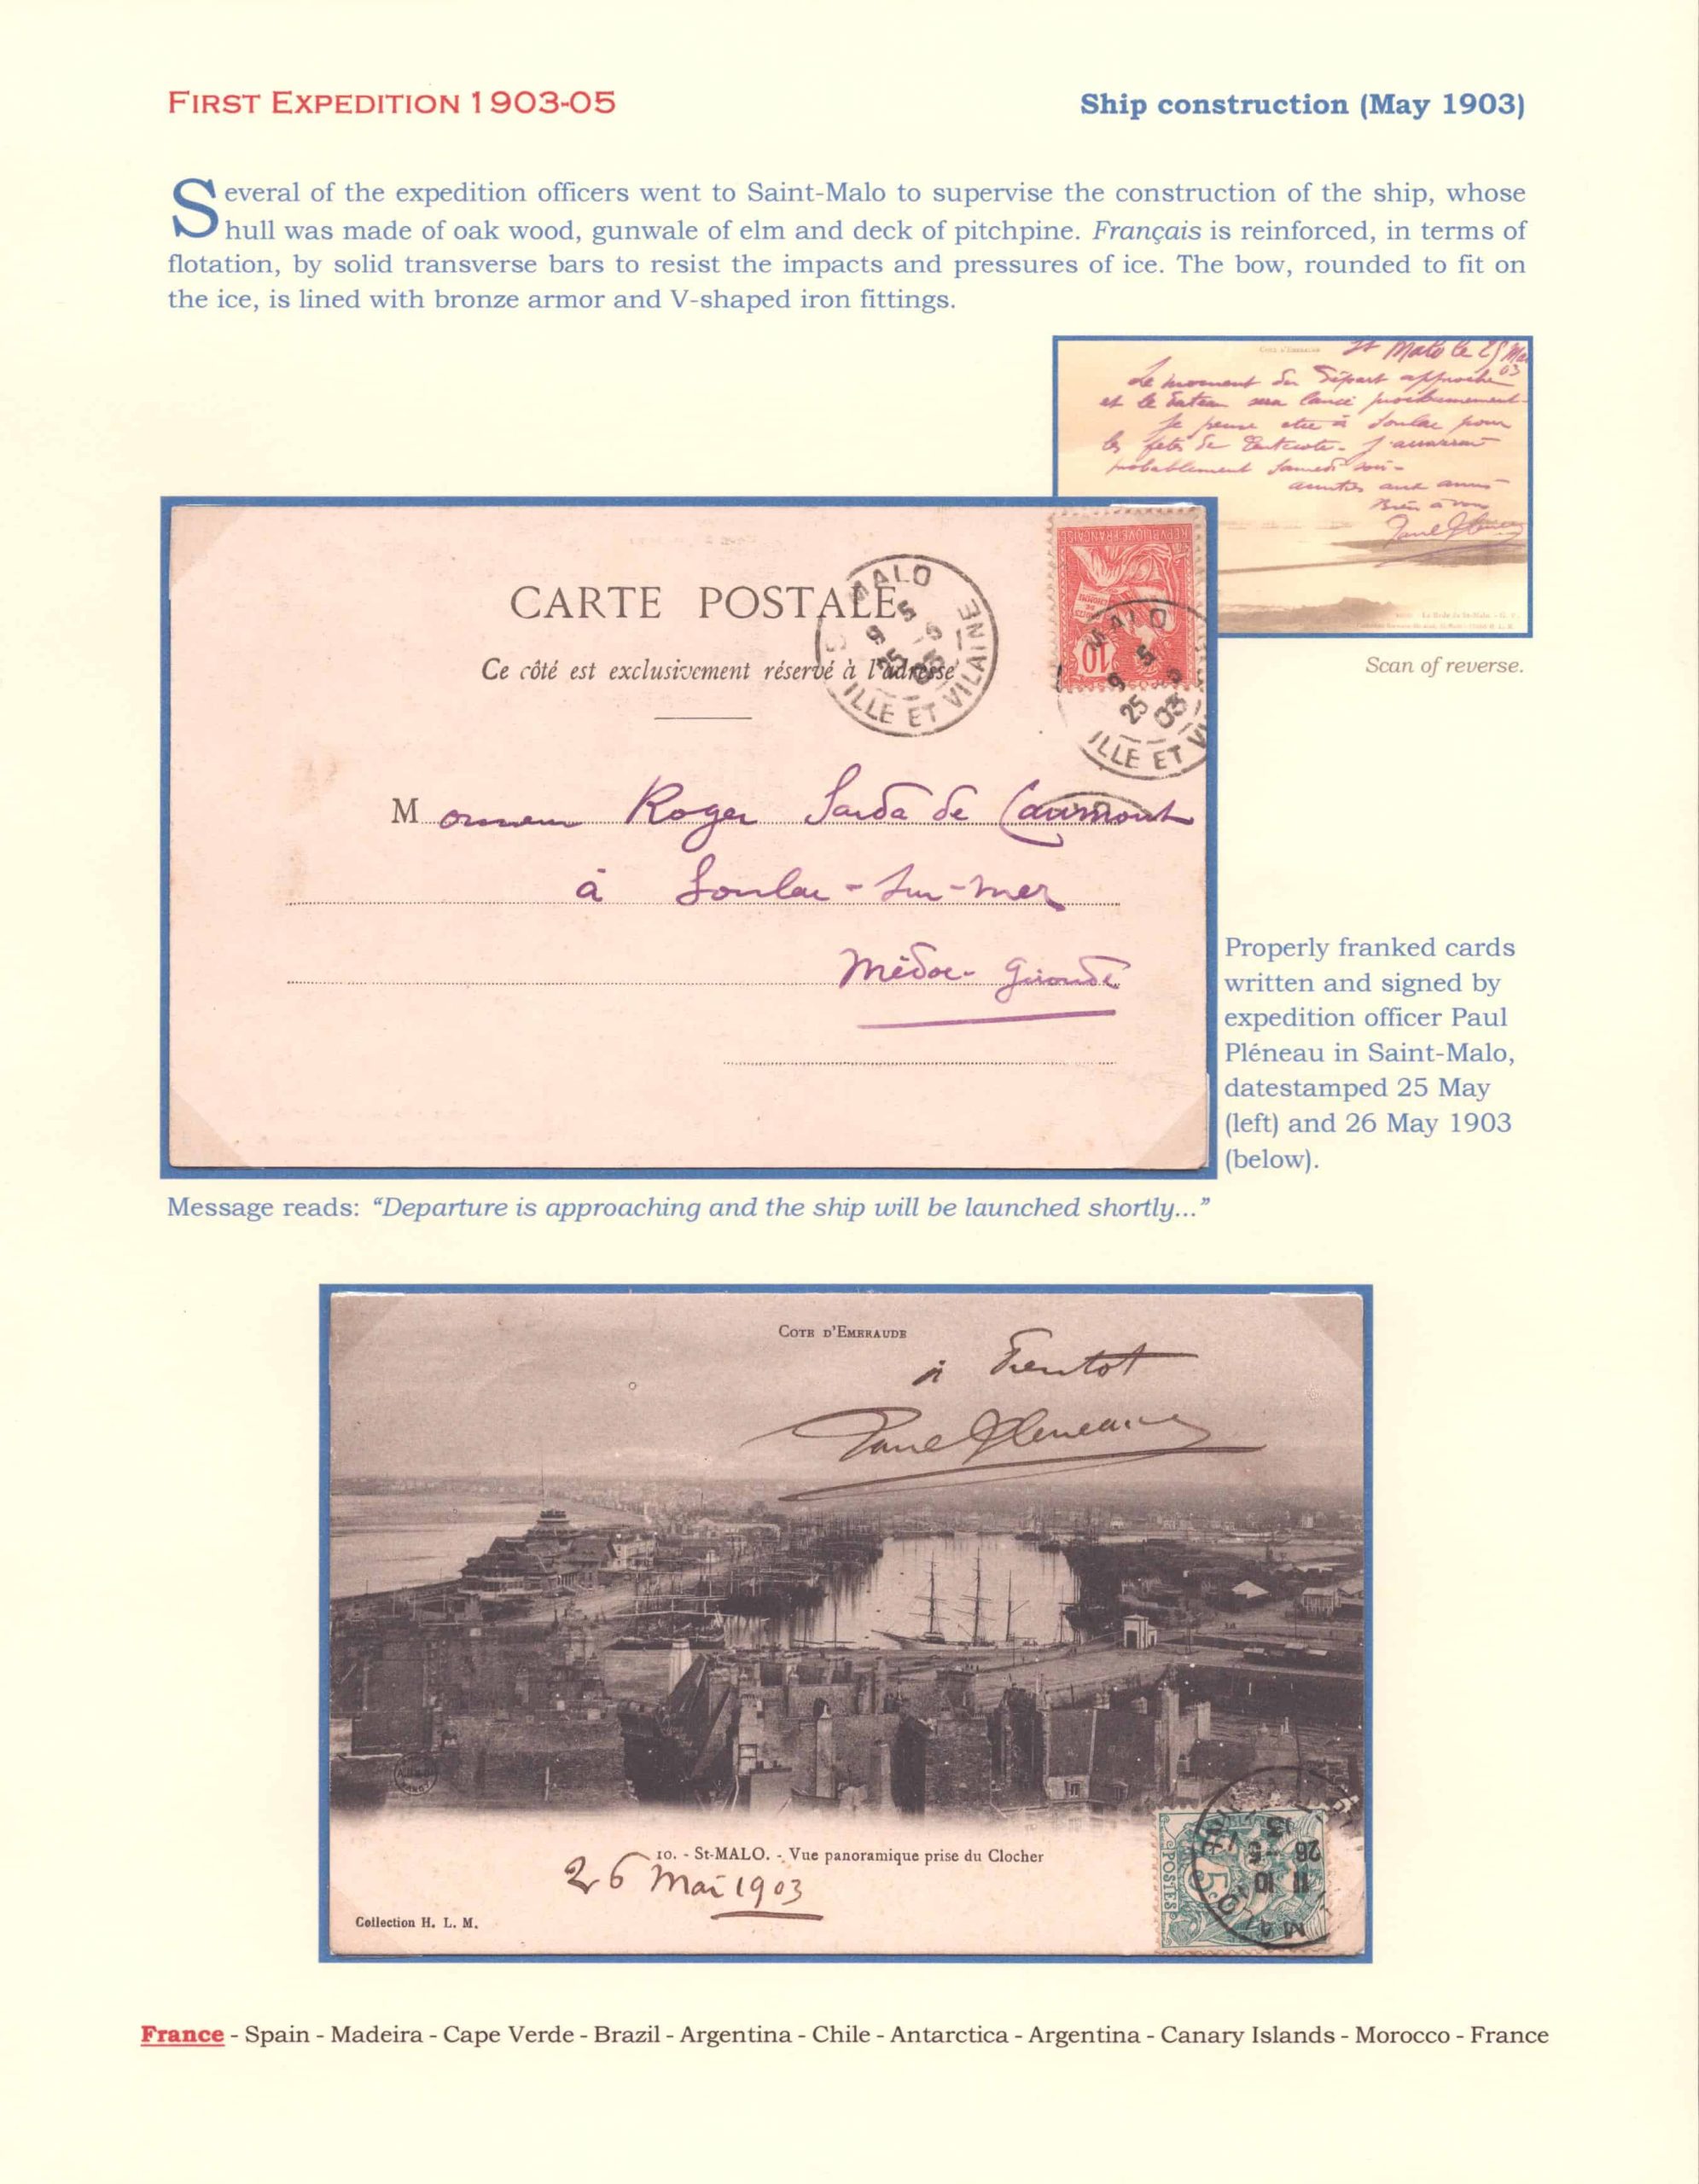 FIRST EXPEDITION 1903-05
Ship construction (May 1903)
Several of the expedition officers went to Saint-Malo to supervise the construction of the ship, whose
hull was made of oak wood, gunwale of elm and deck of pitchpine. Français is reinforced, in terms of
flotation, by solid transverse bars to resist the impacts and pressures of ice. The bow, rounded to fit on
the ice, is lined with bronze armor and V-shaped iron fittings.
St Malo le 25 Mai
03
Le moment du départ approche
et le bateau sera lancé prochainement
Je pense être à Soulac pour
les fêtes de Pentecôte - J'arriverai
probablement Samedi soir -
amitiés aux amis
Bien à vous
Paul Pléneau
Scan of reverse.
CARTE POSTALE
Ce côté est exclusivement réservé à l'adresse
MALO
9 5
25 5
03
ILLE ET VILAINE
REPUBLIQUE FRANÇAISE
10
MALO
9 5
25 5
03
ILLE ET VI
Monsieur Roger Sarda de Caumont
à Soulac-sur-mer
Médoc-Gironde
Properly franked cards
written and signed by
expedition officer Paul
Pléneau in Saint-Malo,
datestamped 25 May
(left) and 26 May 1903
(below).
Message reads: “Departure is approaching and the ship will be launched shortly...”
COTE D'EMERAUDE
à bientot
Paul Pléneau
10. - St-MALO. - Vue panoramique prise du Clocher
26 Mai 1903
Collection H. L. M.
POSTES
5c
MALO
11 10
26 5
France - Spain - Madeira - Cape Verde - Brazil - Argentina - Chile - Antarctica - Argentina - Canary Islands - Morocco - France